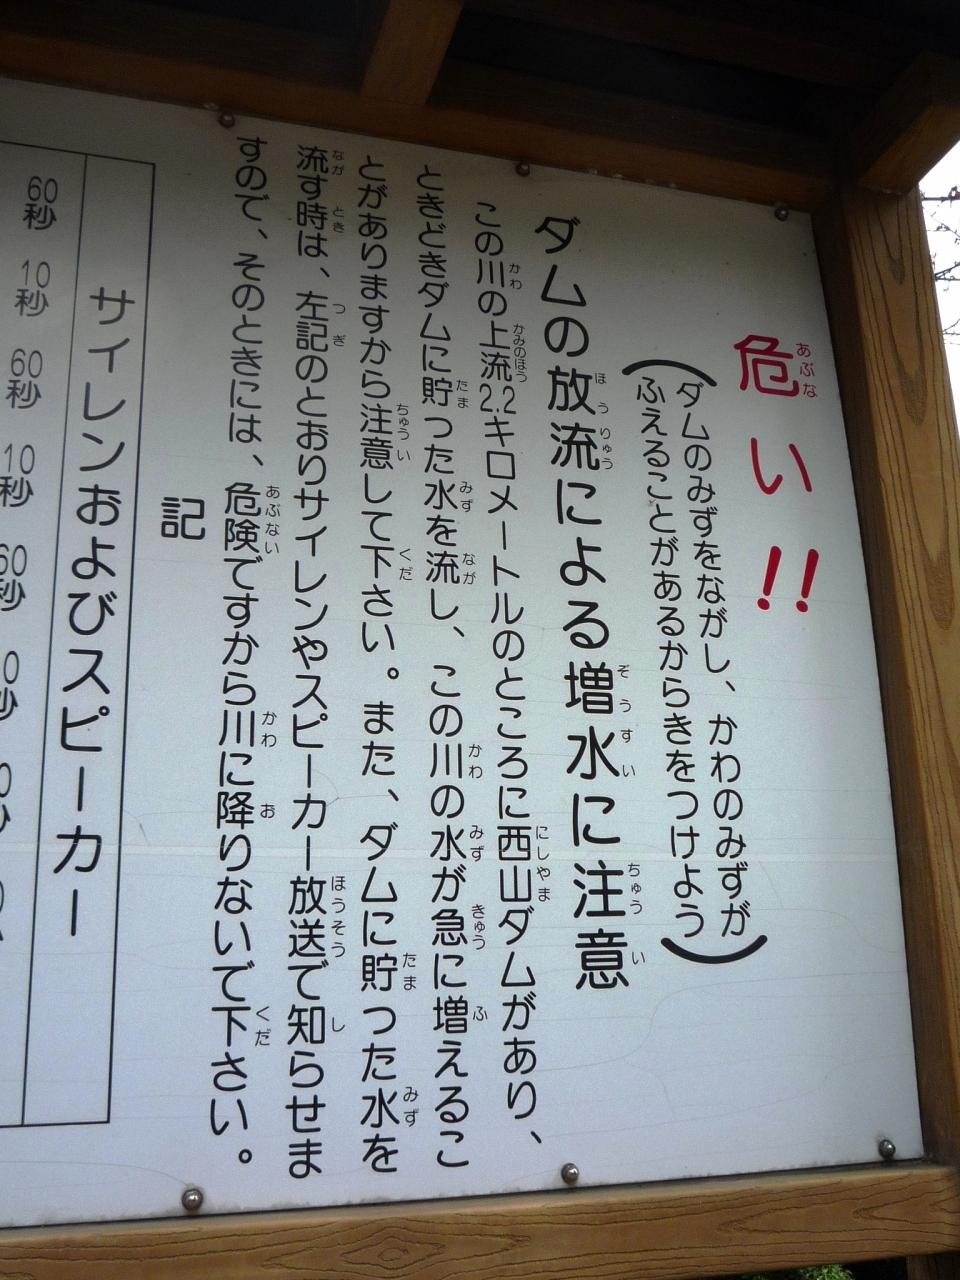 危い!!
(ダムのみずをながし、かわのみずが
ふえることがあるからきをつけよう)
ダムの放流による増水に注意
この川の上流2.2キロメートルのところに西山ダムがあり、
ときどきダムに貯った水を流し、この川の水が急に増えるこ
とがありますから注意して下さい。また、ダムに貯った水を
流す時は、左記のとおりサイレンやスピーカー放送で知らせま
すので、そのときには、危険ですから川に降りないで下さい。
記
サイレンおよびスピーカー
60秒 10秒 60秒 10秒 60秒